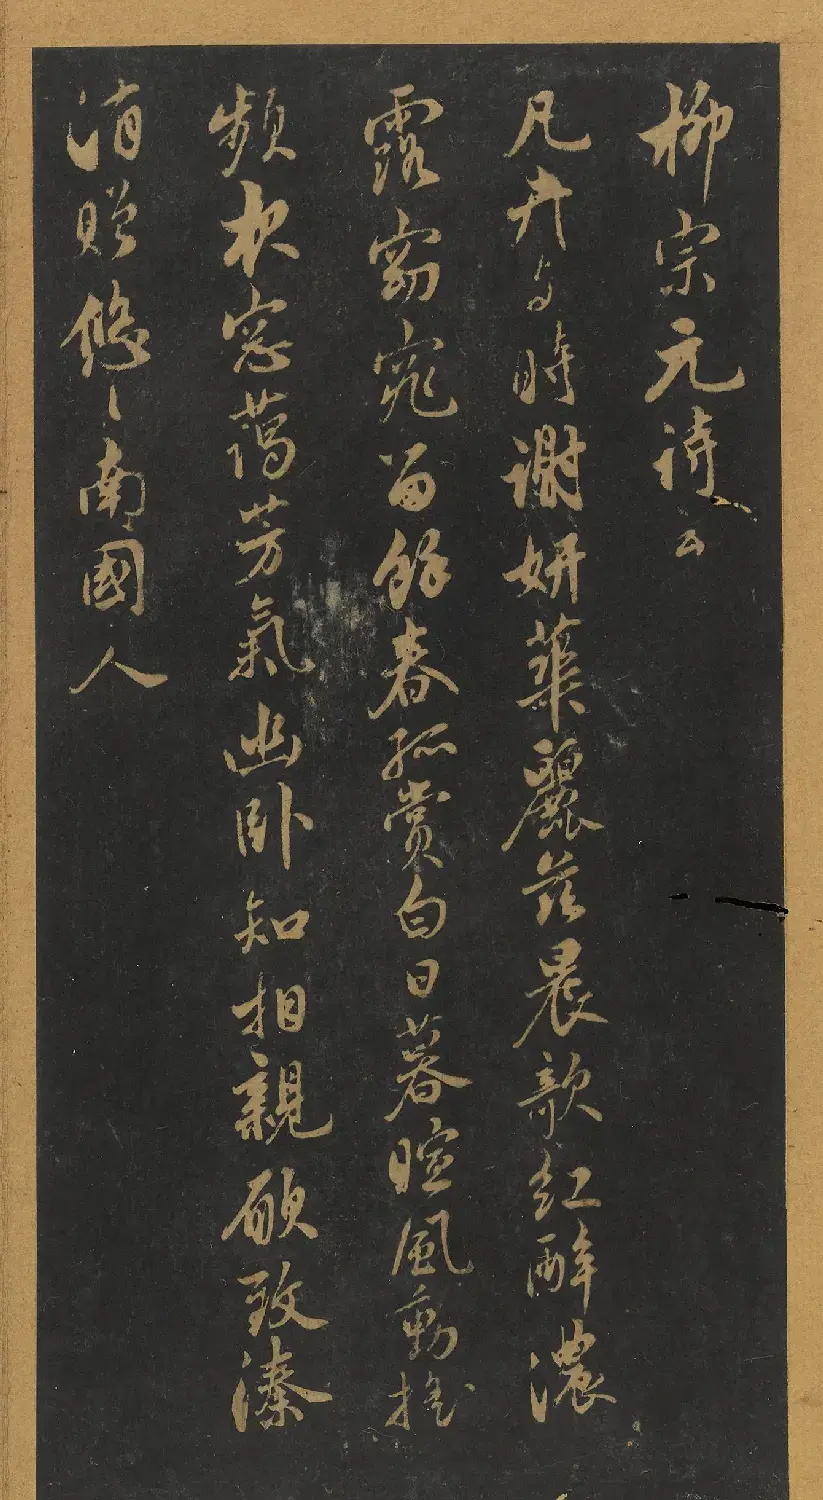 柳宗元诗云
凡卉与時謝妍華麗茲晨欹紅醉濃
露窈窕留餘春孤賞白日暮暄風動搖
頻夜窓藹芳氣幽卧知相親願致溱
洧贈悠〻南國人